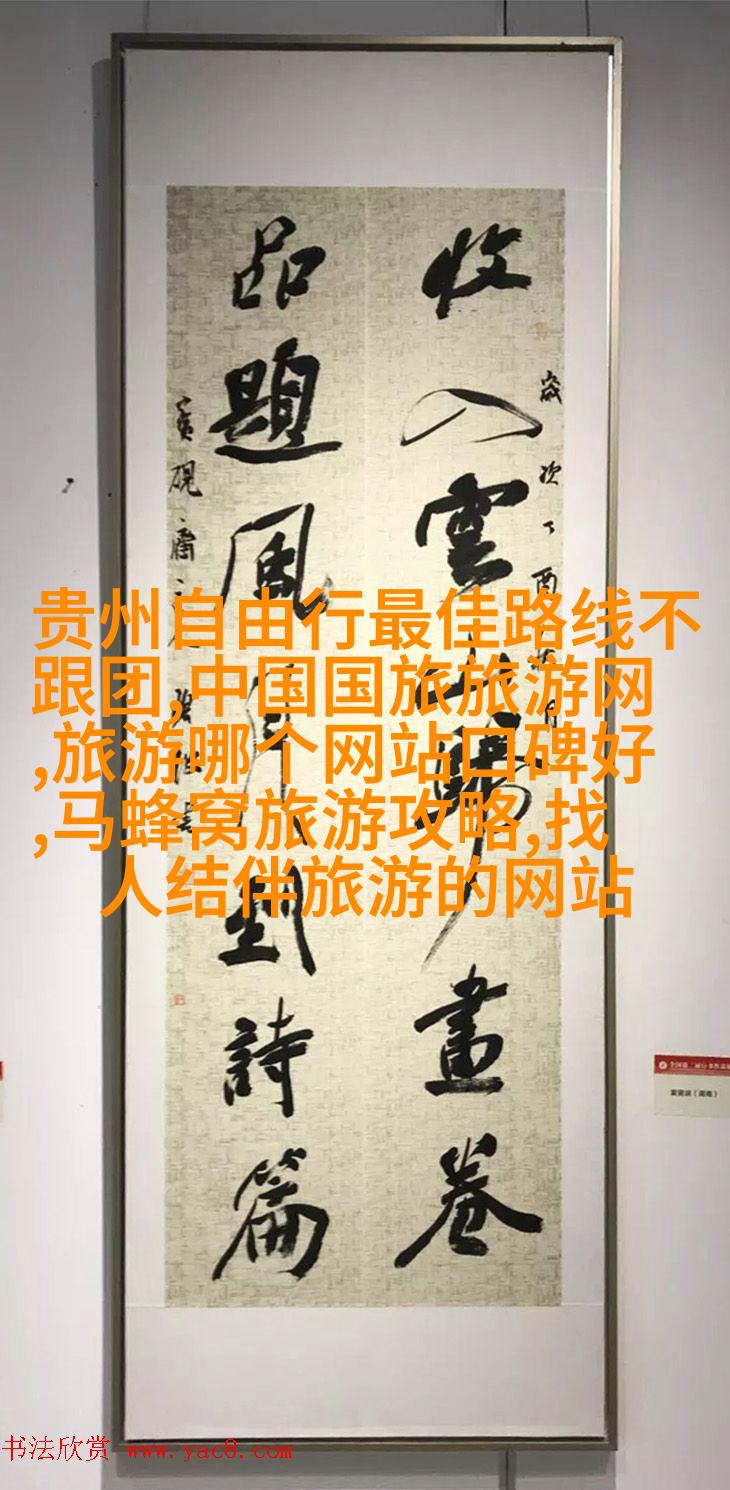 收入雲山歸畫卷
品題風月到詩篇
歲次丁酉
賓硯齋
贵州自由行最佳路线不
跟团,中国国旅旅游网
,旅游哪个网站口碑好
,马蜂窝旅游攻略,找
人结伴旅游的网站
书法欣赏 www.yac8.com